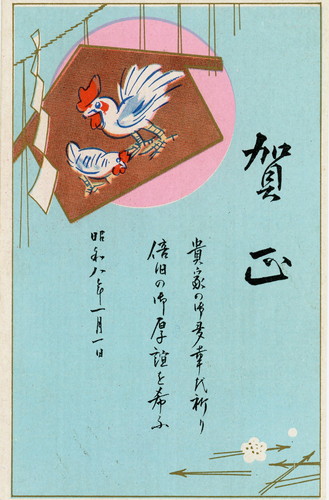 賀正
貴家の御多幸を祈り
倍旧の御厚誼を希ふ
昭和八年一月一日